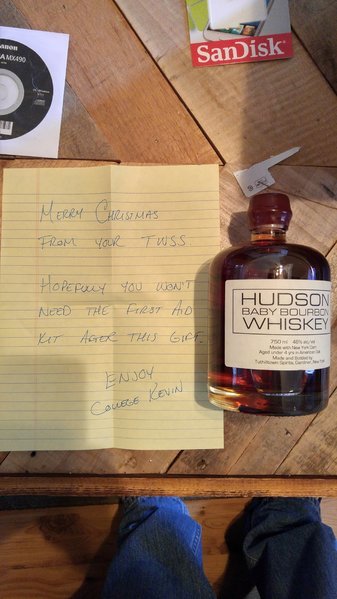 Canon
MX490
SanDisk
MERRY CHRISTMAS
FROM YOUR TWSS
HOPEFULLY YOU WON'T
NEED THE FIRST AID
KIT AFTER THIS GIFT.
ENJOY
COLLEGE KEVIN
HUDSON
BABY BOURBON
WHISKEY
750 ml 46% alc/vol
Made with New York Corn
Aged under 4 yrs in American Oak
Made and Bottled by
Tuthilltown Spirits, Gardiner, New York